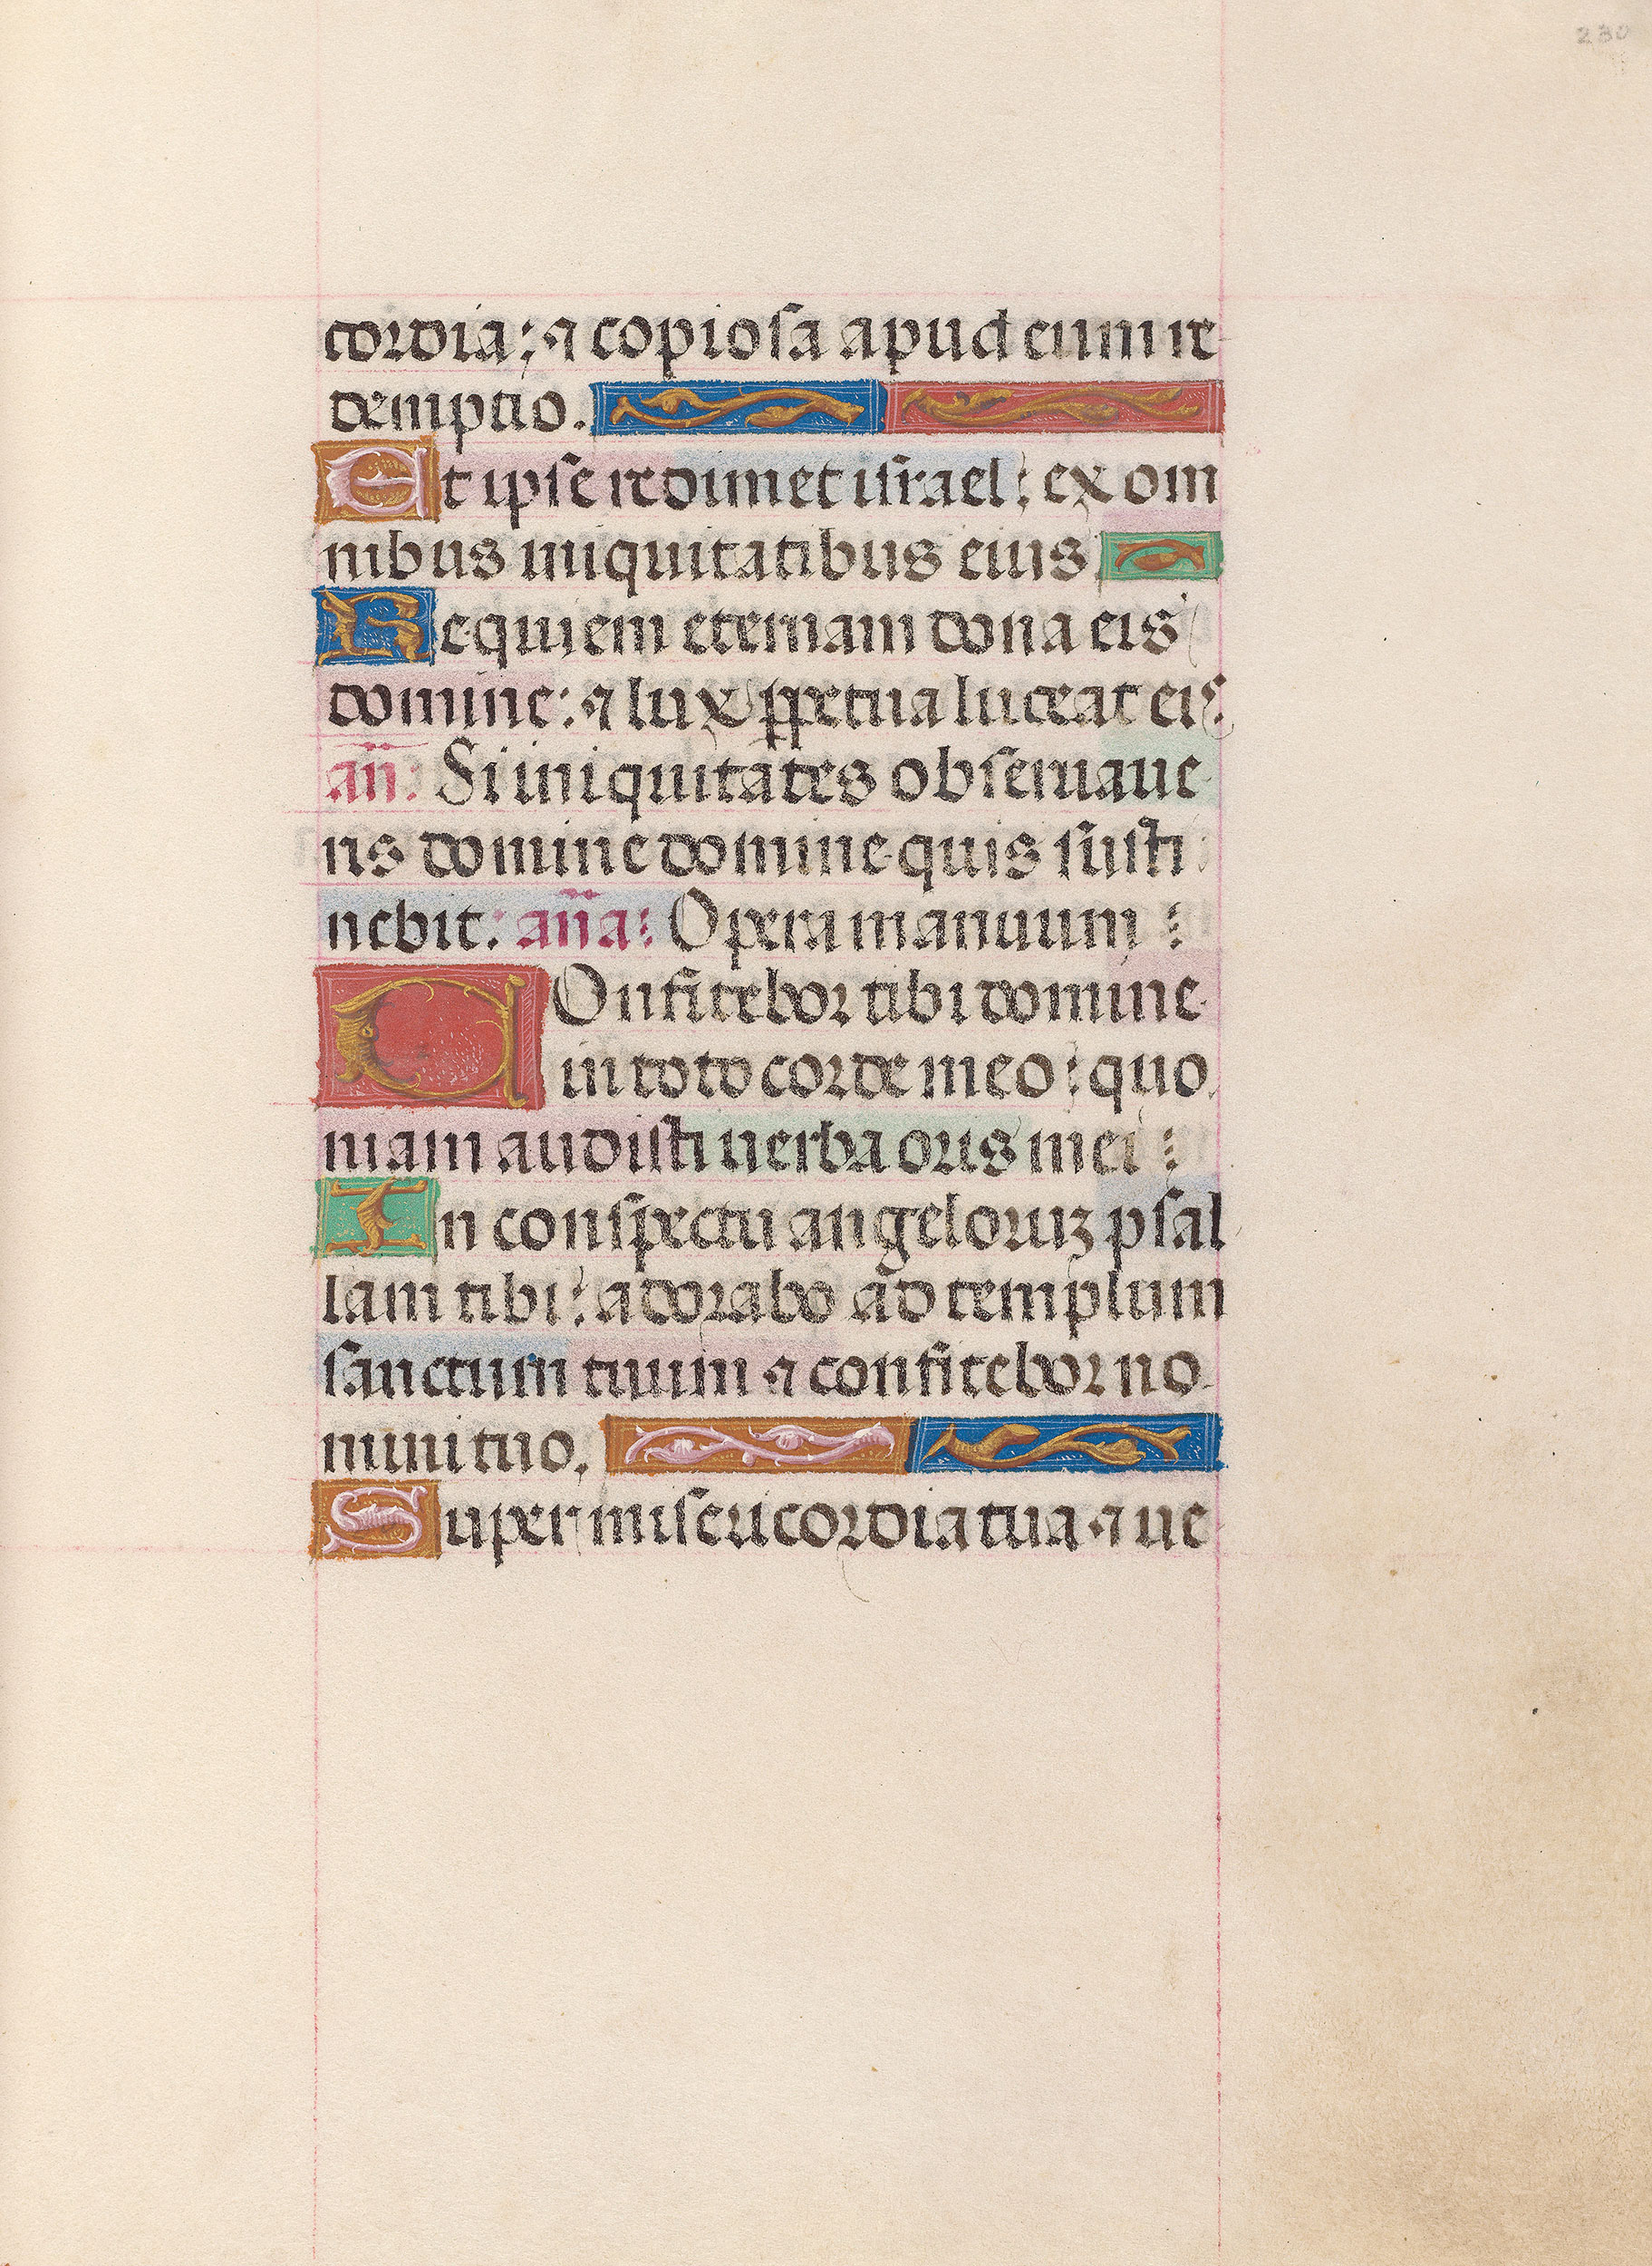 230
cordia: ⁊ copiosa apud eum re
demptio.
Et ipse redimet israel: ex om
nibus iniquitatibus eius.
Requiem eternam dona eis
domine: ⁊ lux ꝑpetua luceat eis.
an̄: Si iniquitates obseruaue
ris domine domine quis susti
nebit: an̄a: Opera manuum:
COnfitebor tibi domine
in toto corde meo: quo
niam audisti uerba oris mei:
In conspectu angeloruꝫ psal
lam tibi: adorabo ad templum
sanctum tuum ⁊ confitebor no
mini tuo.
Super misericordia tua ⁊ ue